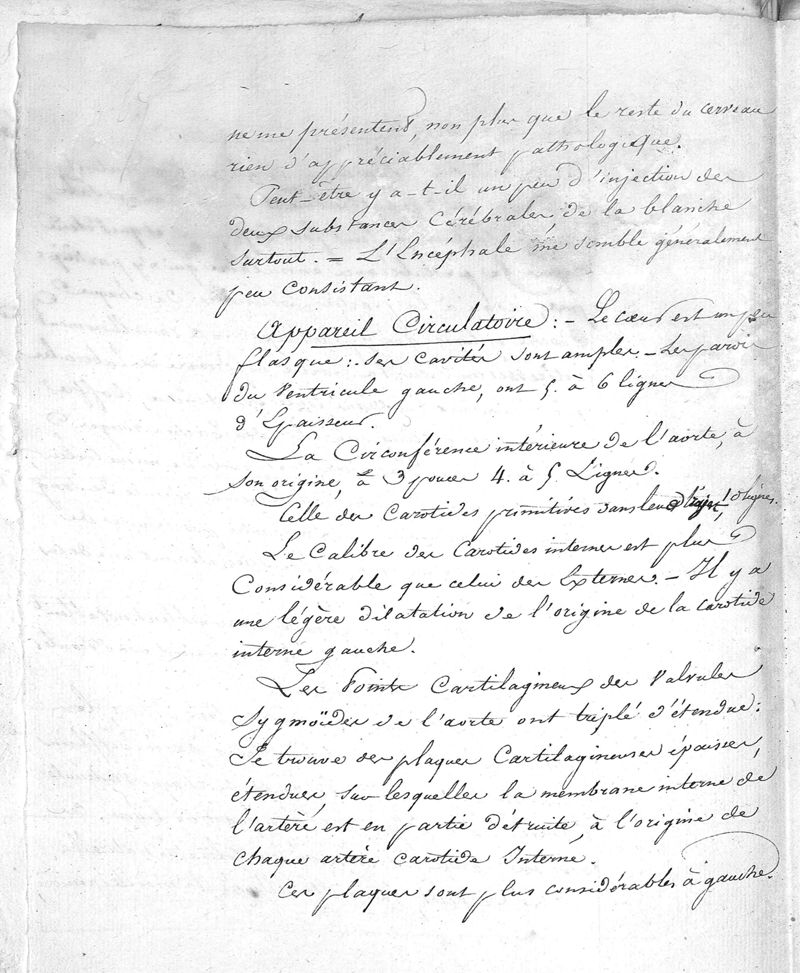 ne me présentent, non plus que le reste du cerveau
rien d'appréciablement pathologique.
Peut-être y a-t-il un peu d'injection des
deux substances Cérébrales de la blanche
surtout. = L'Encéphale me semble généralement
peu consistant.
Appareil Circulatoire : - Le cœur est un peu
flasque : ses cavités sont amples. - Les parois
du Ventricule gauche, ont 5. à 6 lignes
d'Epaisseur.
La Circonférence intérieure de l'aorte, à
son origine, a 3 pouces 4. à 5. Lignes.
Celle des Carotides primitives dans leur trajet, 10 lignes.
Le Calibre des Carotides internes est plus
Considérable que celui des Externes. - Il y a
une légère dilatation de l'origine de la carotide
interne gauche.
Les Points Cartilagineux des Valvules
Sygmoïdes de l'aorte ont triplé d'étendue :
Je trouve des plaques Cartilagineuses épaisses,
étendues, sur lesquelles la membrane interne de
l'artère est en partie détruite, à l'origine de
chaque artère Carotide Interne.
Ces plaques sont plus considérables à gauche.